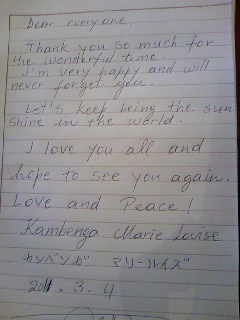 Dear everyone,
Thank you so much for
the wonderful time.
I'm very happy and will
never forget you.
Let's keep being the sun
shine in the world.
I love you all and
hope to see you again.
Love and Peace!
Kambenga Marie Louise
カンベンガ マリールイズ
2011.3.4